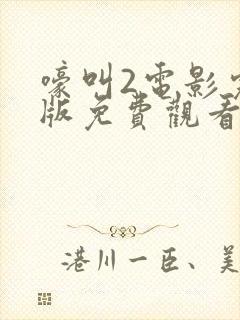 嚎叫2電影
版免費觀看
港川一臣、美